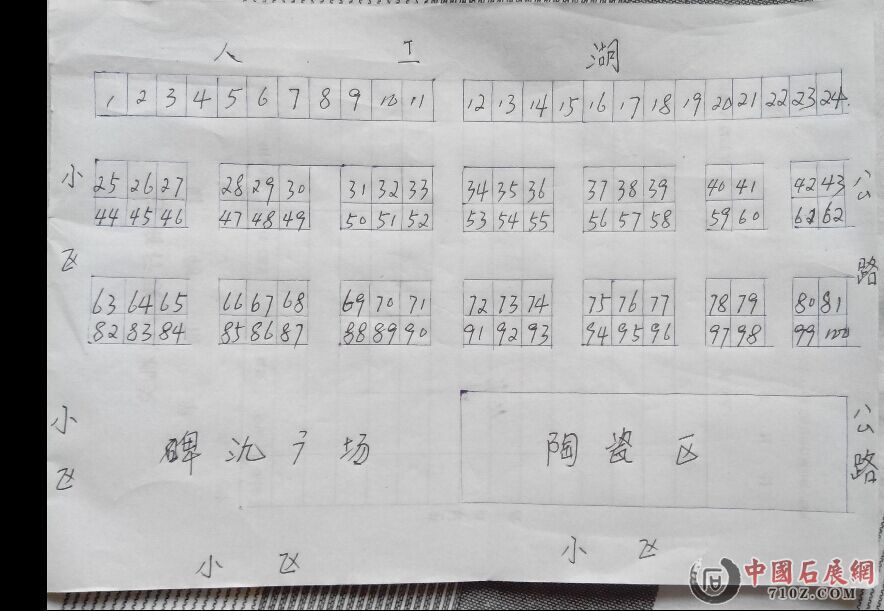 人 工 湖
1 2 3 4 5 6 7 8 9 10 11 12 13 14 15 16 17 18 19 20 21 22 23 24
小区
25 26 27 28 29 30 31 32 33 34 35 36 37 38 39 40 41 42 43
44 45 46 47 48 49 50 51 52 53 54 55 56 57 58 59 60 61 62
公路
63 64 65 66 67 68 69 70 71 72 73 74 75 76 77 78 79 80 81
82 83 84 85 86 87 88 89 90 91 92 93 94 95 96 97 98 99 100
小区
碑氿广场 陶瓷区
公路
小区 小区
中國石展網
710Z.COM